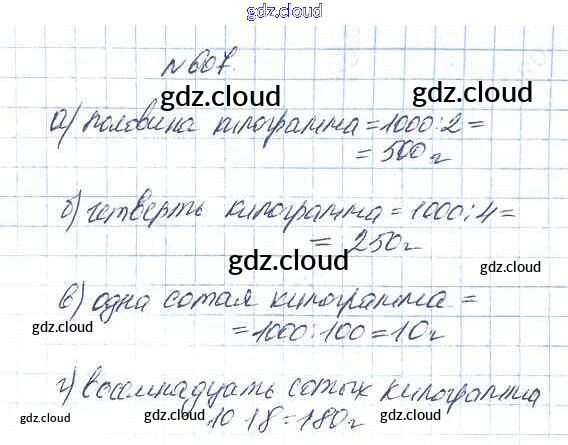 gdz.cloud
№607.
gdz.cloud gdz.cloud
а) половина килограмма = 1000:2 =
= 500 г
gdz.cloud
б) четверть килограмма = 1000:4 =
= 250 г
gdz.cloud
gdz.cloud
в) одна сотая килограмма =
= 1000:100 = 10 г
gdz.cloud gdz.cloud
г) восемнадцать сотых килограмма
10 18 = 180 г
gdz.cloud gdz.cloud gdz.cloud